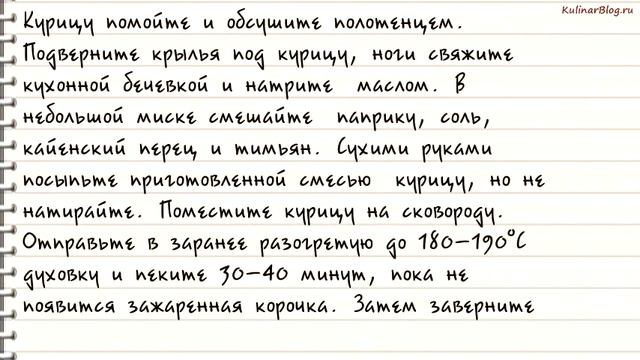 KulinarBlog.ru
Курицу помойте и обсушите полотенцем.
Подверните крылья под курицу, ноги свяжите
кухонной бечевкой и натрите маслом. В
небольшой миске смешайте паприку, соль,
кайенский перец и тимьян. Сухими руками
посыпьте приготовленной смесью курицу, но не
натирайте. Поместите курицу на сковороду.
Отправьте в заранее разогретую до 180-190°С
духовку и пеките 30-40 минут, пока не
появится зажаренная корочка. Затем заверните